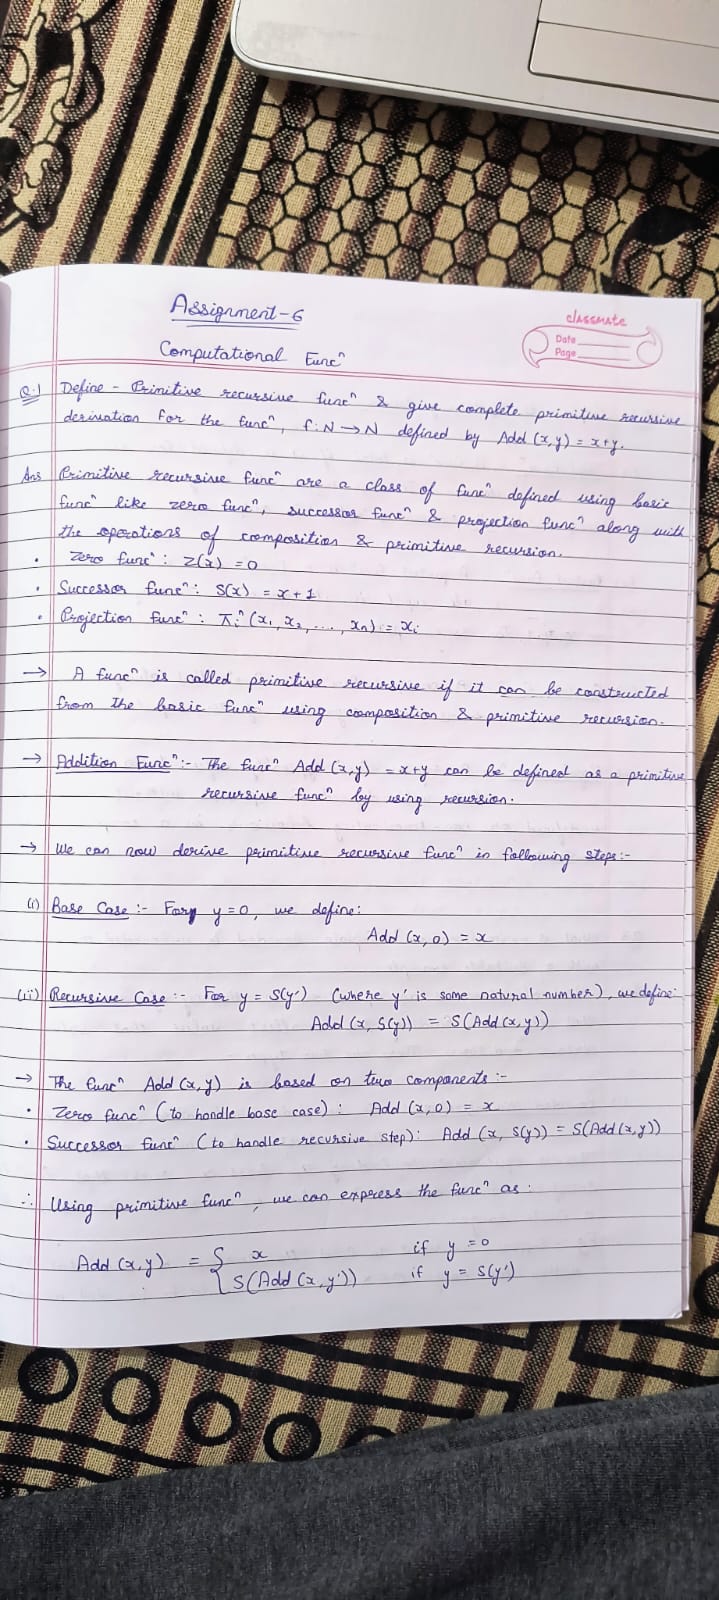 Assignment-6
classmate
Date
Page
Computational Funcⁿ
Q.1 Define - Primitive recursive funcⁿ & give complete primitive recursive
derivation for the funcⁿ, f:N→N defined by Add (x,y) = x+y.
Ans Primitive recursive funcⁿ are a class of funcⁿ defined using basic
funcⁿ like zero funcⁿ, successor funcⁿ & projection funcⁿ along with
the operations of composition & primitive recursion.
• Zero funcⁿ: Z(x) = 0
• Successor funcⁿ: S(x) = x+1
• Projection funcⁿ: πᵢⁿ (x₁, x₂, ..., xₙ) = xᵢ
→ A funcⁿ is called primitive recursive if it can be constructed
from the basic funcⁿ using composition & primitive recursion.
→ Addition Funcⁿ:- The funcⁿ Add (x,y) = x+y can be defined as a primitive
recursive funcⁿ by using recursion.
→ We can now derive primitive recursive funcⁿ in following steps:-
(i) Base Case:- For y=0, we define:
Add (x, 0) = x
(ii) Recursive Case:- For y = S(y') (where y' is some natural number), we define:
Add (x, S(y)) = S(Add (x,y))
→ The funcⁿ Add (x,y) is based on two components:-
• Zero funcⁿ (to handle base case): Add (x, 0) = x
• Successor funcⁿ (to handle recursive step): Add (x, S(y)) = S(Add (x,y))
∴ Using primitive funcⁿ, we can express the funcⁿ as:
Add (x,y) = { x if y = 0
S(Add (x,y')) if y = S(y')